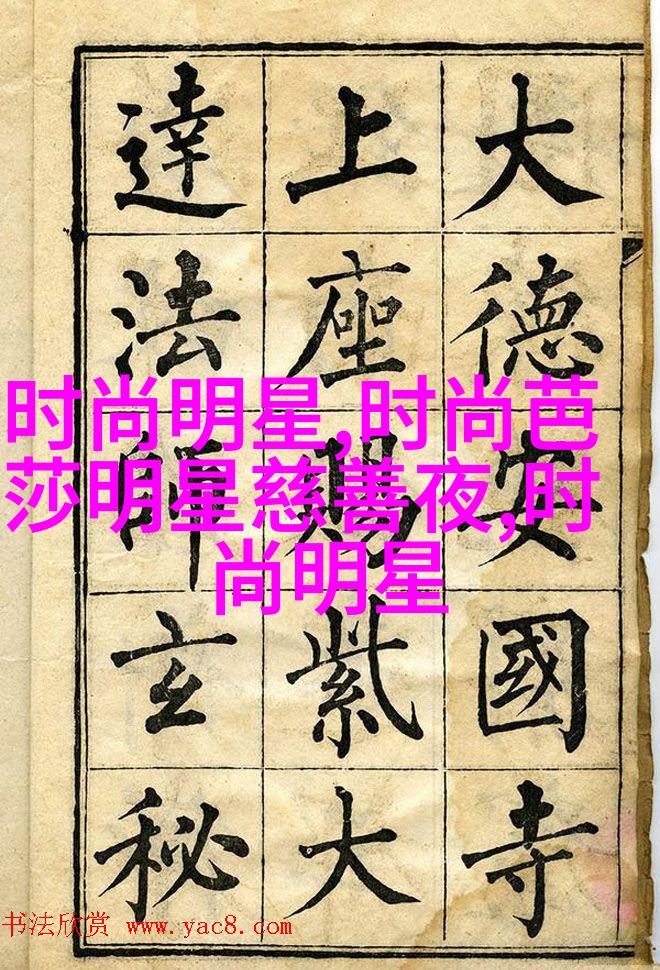 大德安國寺
上座賜紫大
達法師玄秘
时尚明星,时尚芭
莎明星慈善夜,时
尚明星
书法欣赏 www.yac8.com